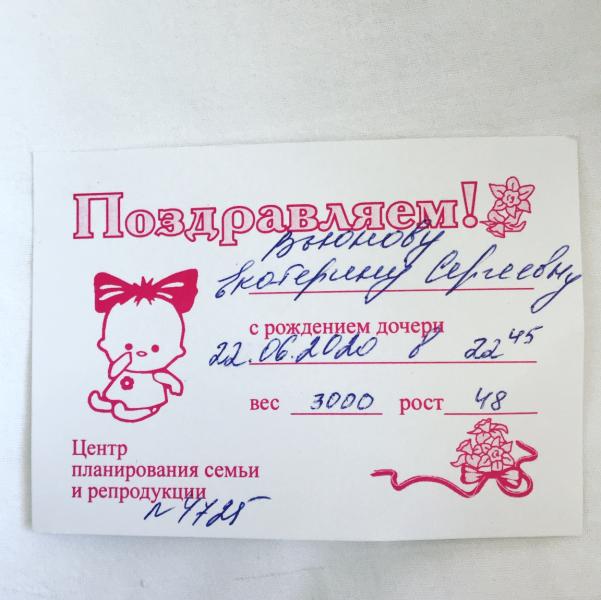 Поздравляем!
Вьюнову
Екатерину Сергеевну
с рождением дочери
22.06.2020 в 22 45
вес 3000 рост 48
Центр
планирования семьи
и репродукции
N 4725